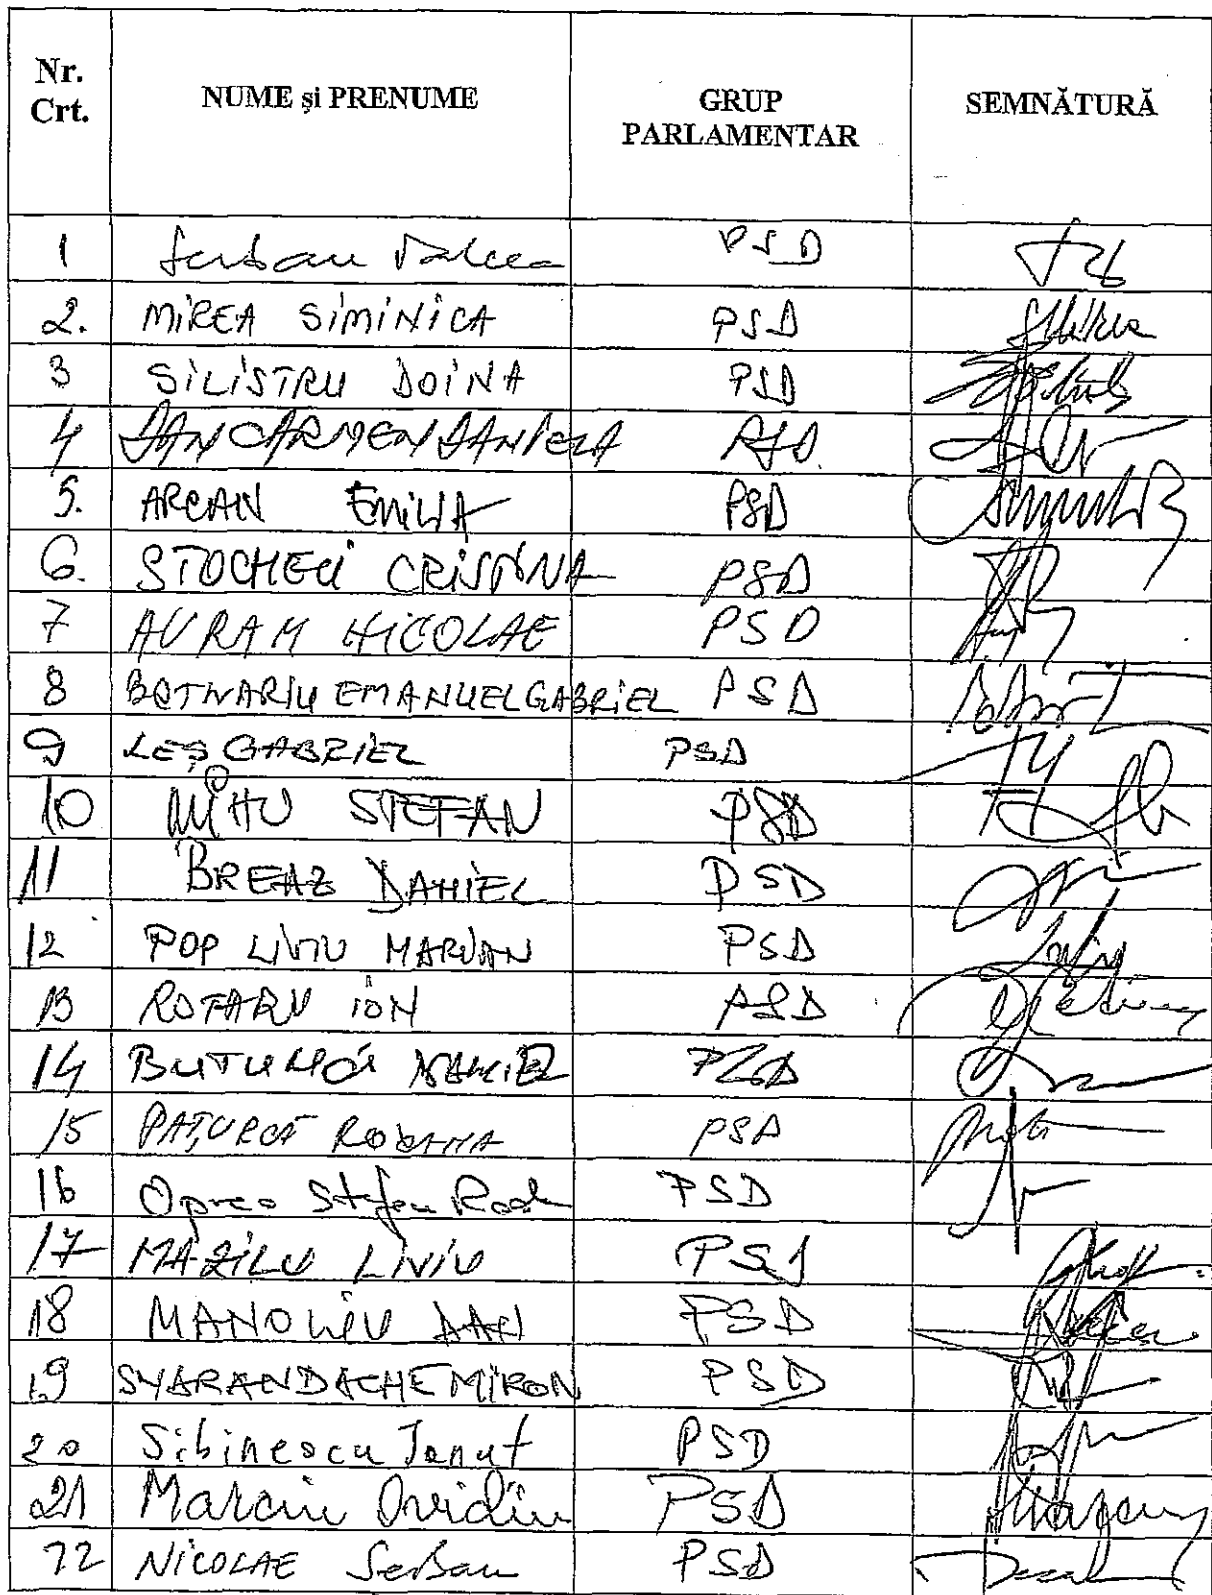 Nr. Crt. NUME și PRENUME GRUP PARLAMENTAR SEMNĂTURĂ
1 Serban Valeca PSD
2. MIREA SIMINICA PSD
3 SILISTRU DOINA PSD
4 DAN CARMEN DANIELA PSD.
5. ARCAN EMILIA PSD
6. STOCHECI CRISTINA PSD
7 AVRAM NICOLAE PSD
8 BOTNARIU EMANUEL GABRIEL PSD
9 LEȘ GABRIEL PSD
10 MIHU STEFAN PSD
11 BREAZ DANIEL PSD
12 POP LIVIU MARIAN PSD
13 ROTARU ION PSD
14 BUTUNOI PSD
15 PAȚURCĂ ROXANA PSD
16 Oprea Stefan Radu PSD
17 MAZILU LIVIU PSD
18 MANOLIU DAN PSD
19 SMARANDACHE MIRON PSD
20 Sibinescu Ionut PSD
21 Marciu Ovidiu PSD
22 NICOLAE Serban PSD